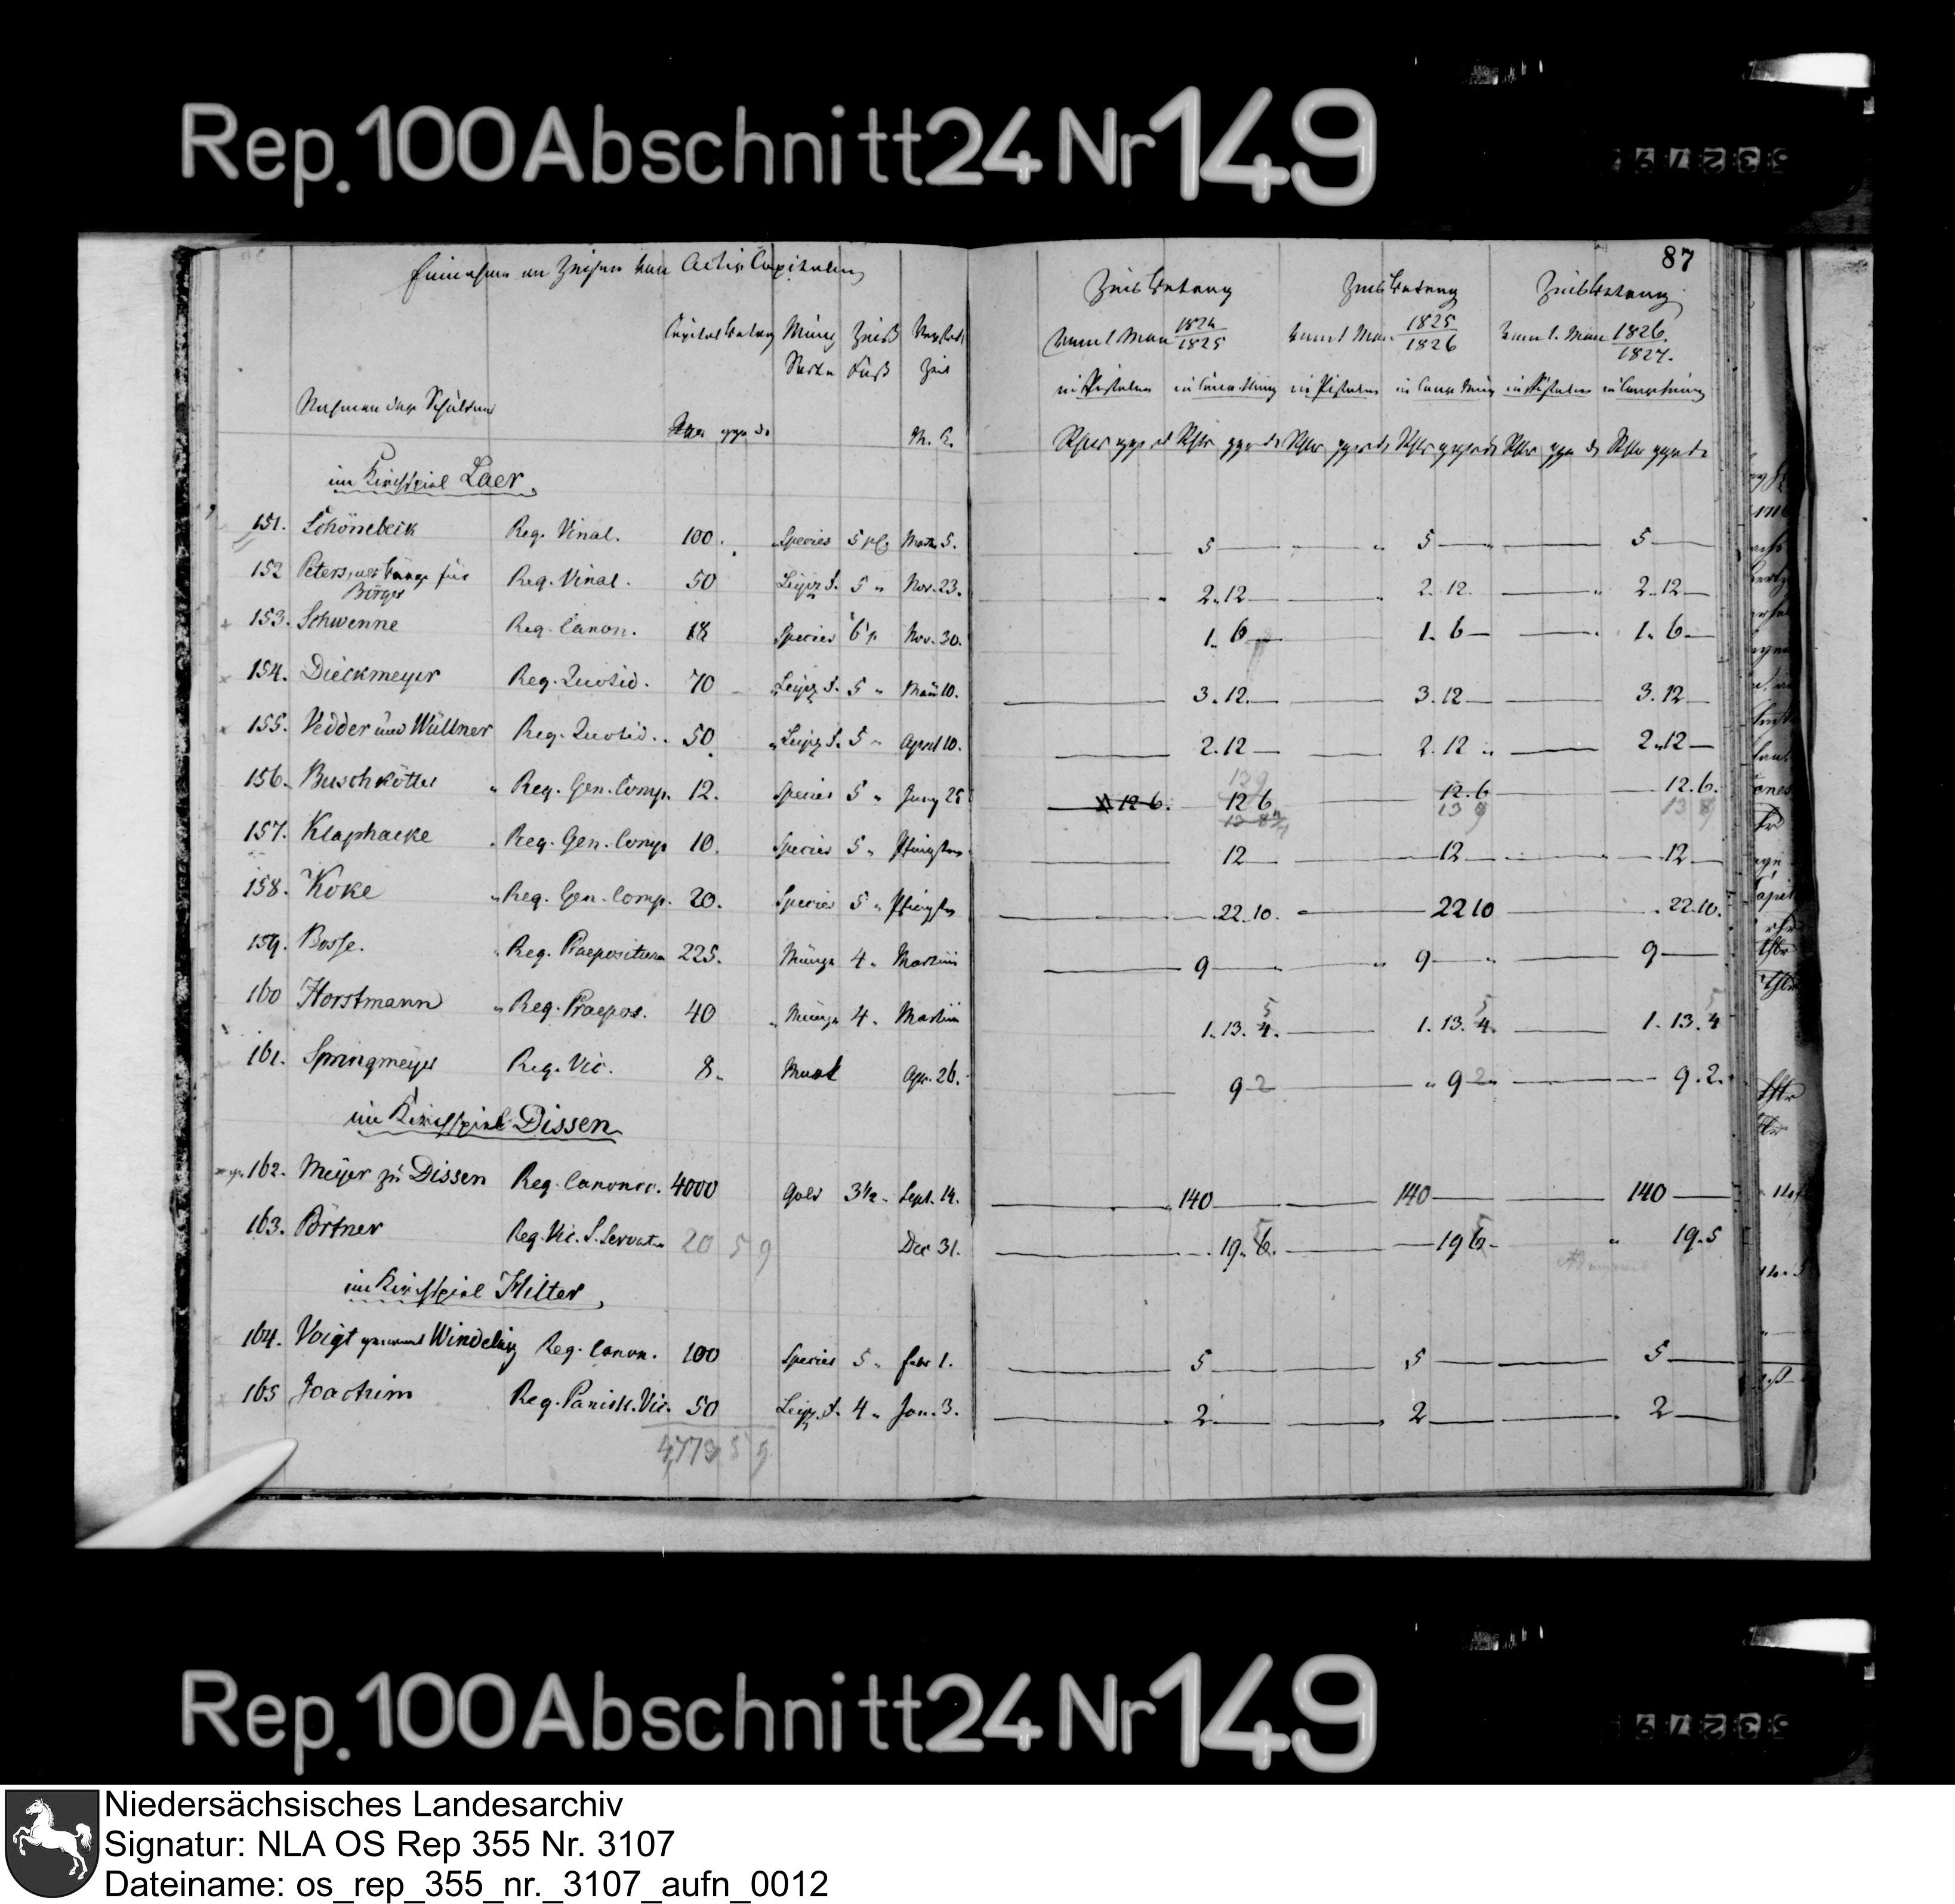 Rep. 100 Abschnitt 24 Nr 149
87
Einnahme an Zinsen von Activ Capitalien
Zinsbetrag Zinsbetrag Zinsbetrag
Capital Betrag Münz Sorte Zins Fuß Zeit
1824/1825 1825/1826 1826/1827.
Nahmen der Schuldner
im Kirchspiel Laer.
151. Schönebeck Reg. Vinal. 100. Species 5 Mart. 5. 5 5 5
152 Peters, für Börger Reg. Vinal. 50 Leipz. S. 5 " Nov. 23. 2.12 2.12. 2.12
153. Schwenne Reg. Canon. 18 Species 6 " Nov. 30. 1. 6 1. 6 1. 6
154. Dieckmeyer Reg. Quotid. 70 Leipz. S. 5 " Mai 10. 3.12 3.12 3.12
155. Vedder und Wüllner Reg. Quotid. 50 Leipz. S. 5 " April 10. 2.12 2.12 2.12
156. Buschkötter Reg. Gen. Comp. 12. Species 5 " Juny 25 12.6. 12 6 12.6 12.6.
13 9 13 9 13 9
157. Klaphacke Reg. Gen. Comp 10. Species 5 " Pfingsten 12 12 12
158. Koke Reg. Gen. Comp. 20. Species 5 " Pfingsten 22.10. 22 10 22.10.
159. Bosse. Reg. Praepositura 225. Münze 4 " Martini 9 9 9
160 Horstmann Reg. Praepos. 40 Münze 4 " Martini 1.13.4. 1.13.4. 1.13.4
5 5 5
161. Springmeyer Reg. Vic. 8. Apr. 26. 9 2 9 2 9.2.
im Kirchspiel Dissen
162. Meyer zu Dissen Reg. Canonic. 4000 Gold 3½ Sept. 14. 140 140 140
163. Pörtner Reg. Vic. S. Servat. 20 5 9 Dec 31. 19.6. 19 6 19.5
5 5
im Kirchspiel Hilter,
164. Voigt genannt Windeling Reg. Canon. 100 Species 5 " Febr 1. 5 5 5
165 Joachim Reg. Panist. Vic. 50 Leipz. S. 4 " Jan. 3. 2 2 2
4,773 5 9
Rep. 100 Abschnitt 24 Nr 149
Niedersächsisches Landesarchiv
Signatur: NLA OS Rep 355 Nr. 3107
Dateiname: os_rep_355_nr._3107_aufn_0012